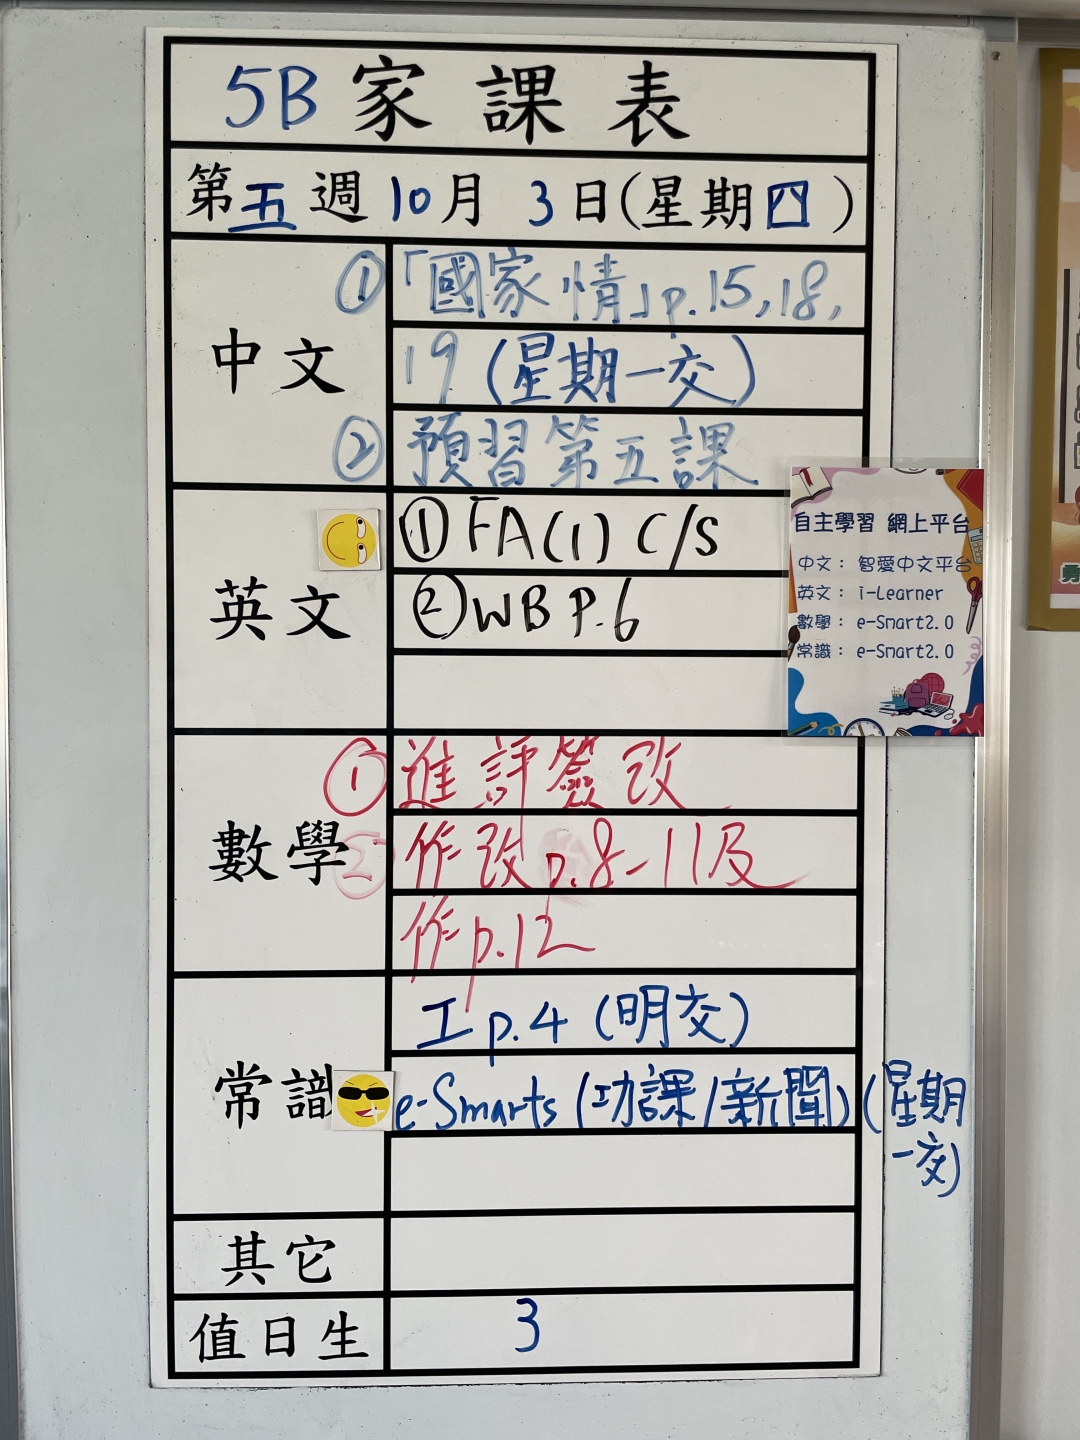 5B 家課表
第五週 10月 3日(星期四)
中文
① 「國家情」p.15,18,
19 (星期一交)
② 預習第五課
英文
① FA(1) C/S
② WB P.6
數學
① 進評簽改
② 作改p.8-11及
作p.12
常識
工p.4 (明交)
e-Smarts (功課/新聞) (星期
一交)
其它
值日生
3
自主學習 網上平台
中文： 智愛中文平台
英文： i-Learner
數學： e-Smart2.0
常識： e-Smart2.0